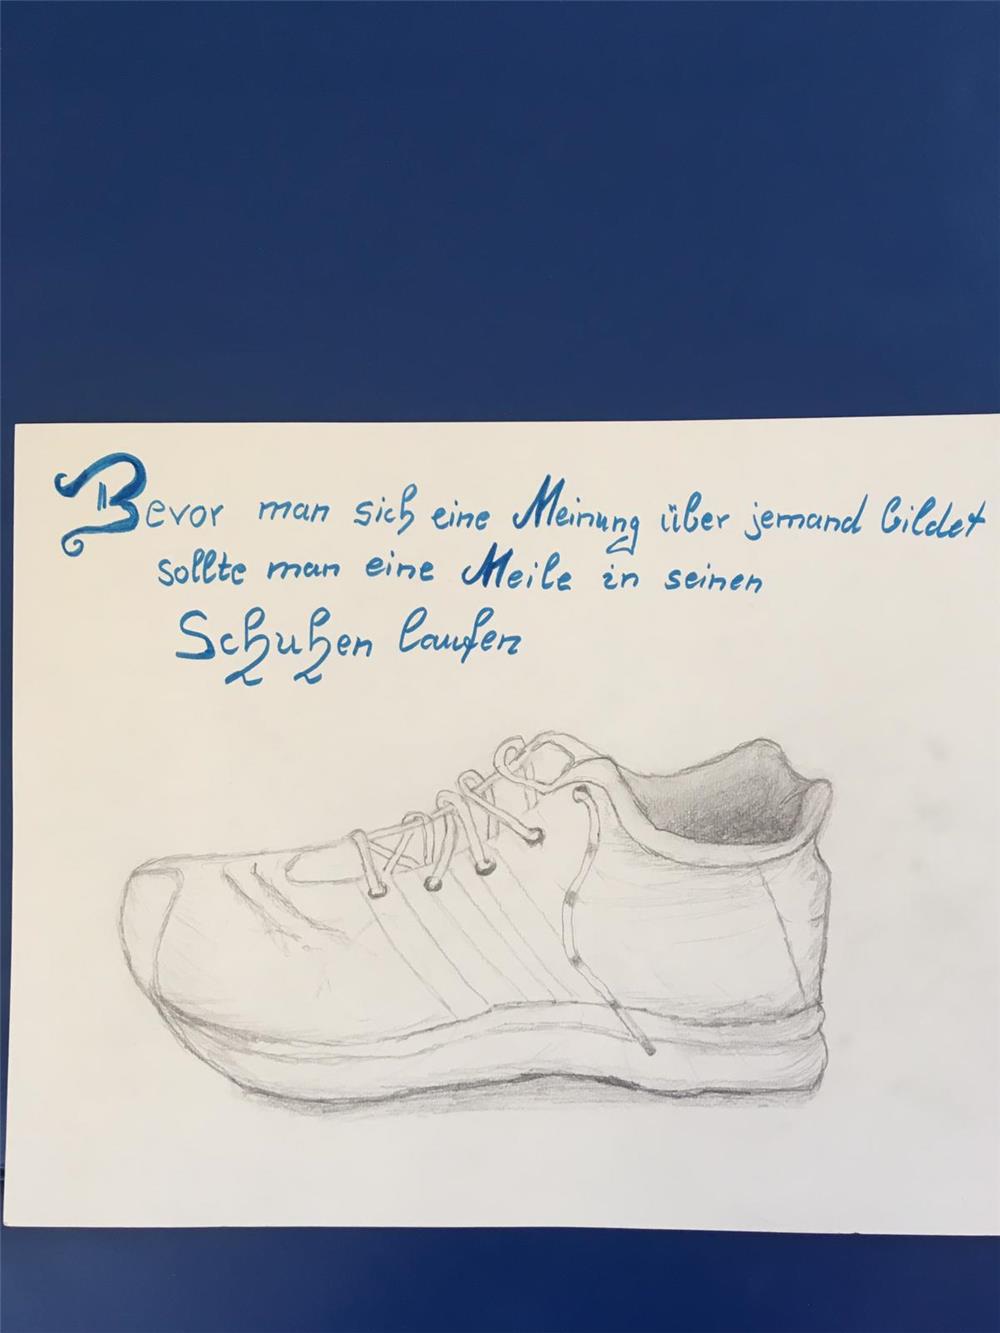 Bevor man sich eine Meinung über jemand bildet
sollte man eine Meile in seinen
Schuhen laufen